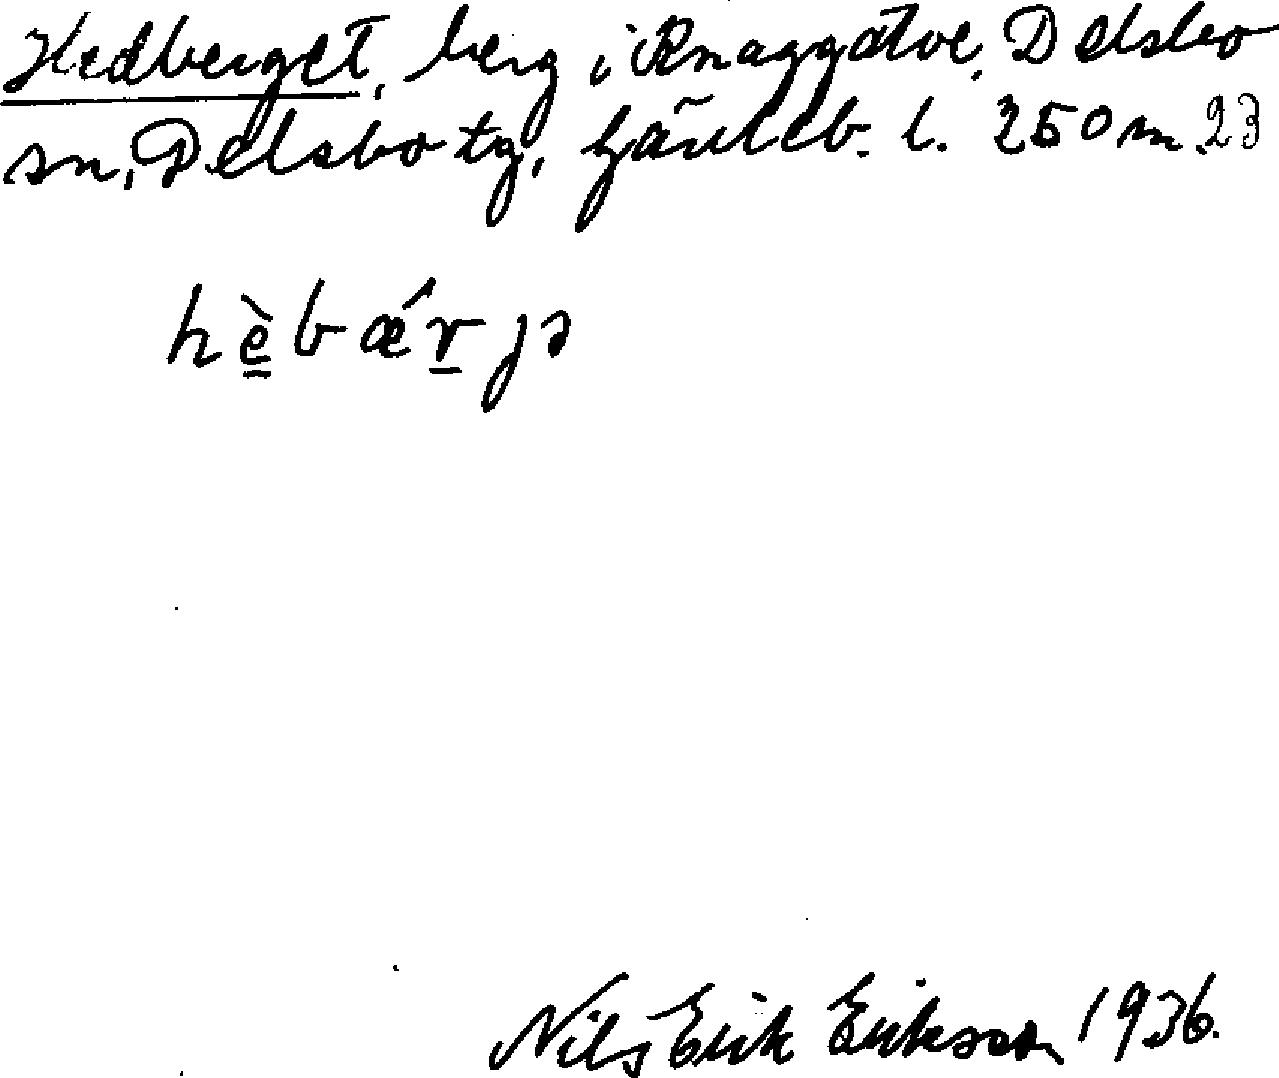 Hedberget, berg i Knaggälve, Delsbo
sn, Delsbo tg, Gävleb. l. 250 m. 23
hèbǽrjɘ
Nils Erik Erikson 1936.